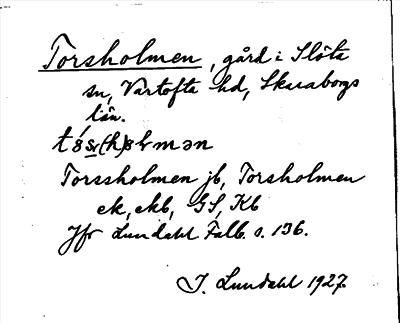 Torsholmen, gård i Slöta
sn, Vartofta hd, Skaraborgs
län.
Torssholmen jb, Torsholmen
ek, ekb, GS, Kb
Jfr Lundahl Falb. s. 136.
I. Lundahl 1927.